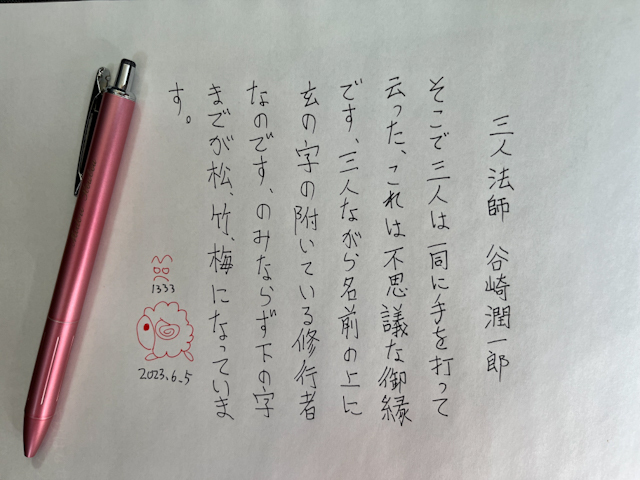 三人法師 谷崎潤一郎
そこで三人は一同に手を打って
云った、これは不思議な御縁
です、三人ながら名前の上に
玄の字の附いている修行者
なのです、のみならず下の字
までが松、竹、梅になっていま
す。
1333
2023.6.5